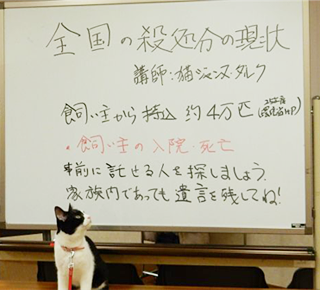 全国の殺処分の現状
講師:猫ジャンヌ・ダルク
飼い主から持込 約4万匹(25年度
(環境省HP)
・飼い主の入院・死亡
事前に託せる人を探しましょう。
家族内であっても遺言を残してね!